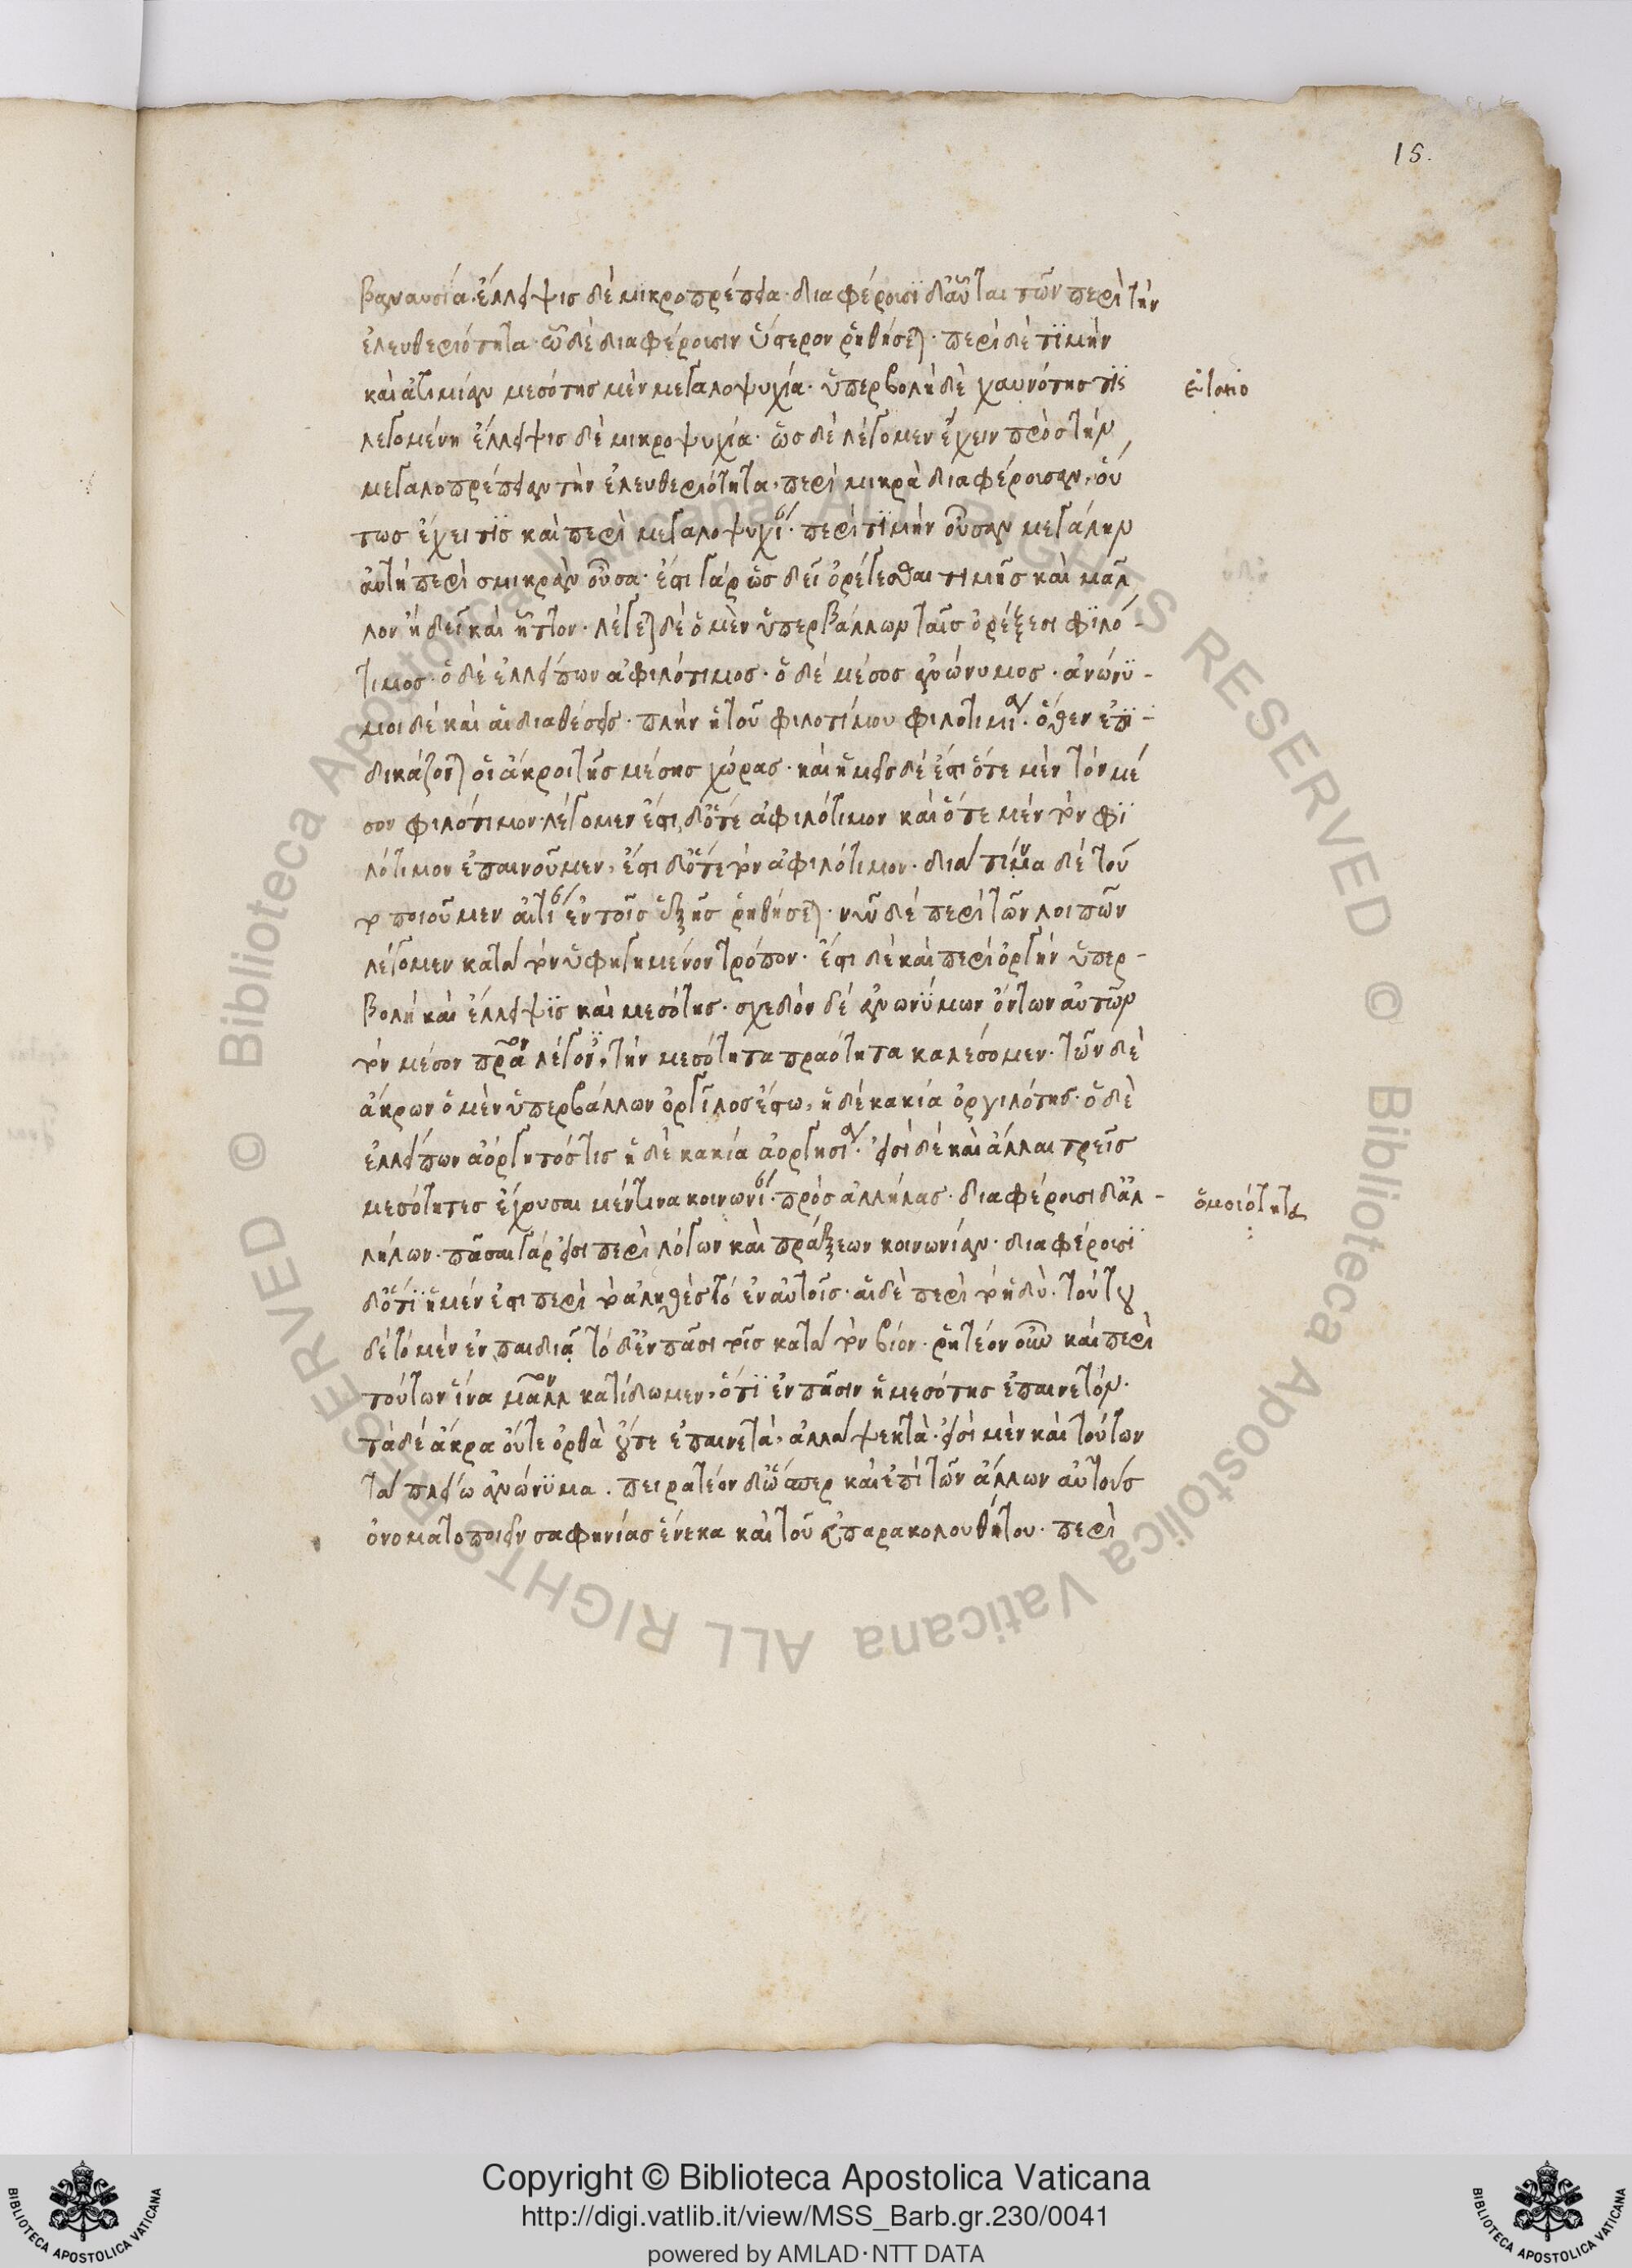 15.
βαναυσία. ἔλλειψις δὲ μικροπρέπεια. διαφέρουσι δ' αὗται τῶν περὶ τὴν
ἐλευθεριότητα. ᾧ δὲ διαφέρουσιν ὕστερον ῥηθήσεται. περὶ δὲ τιμὴν
καὶ ἀτιμίαν μεσότης μὲν μεγαλοψυχία. ὑπερβολὴ δὲ χαυνότης τὶς
λεγομένη ἔλλειψις δὲ μικροψυχία. ὡς δὲ λέγομεν ἔχειν πρὸς τὴν
μεγαλοπρέπειαν τὴν ἐλευθεριότητα, περὶ μικρὰ διαφέρουσαν, οὕ
τως ἔχει τὶς καὶ περὶ μεγαλοψυχίαν. περὶ τιμὴν οὖσαν μεγάλην
αὐτὴ περὶ σμικρὰν οὖσα. ἔστι γὰρ ὡς δεῖ ὀρέγεσθαι τιμῆς καὶ μᾶλ
λον ἢ δεῖ καὶ ἧττον. λέγεται δὲ ὁ μὲν ὑπερβάλλων ταῖς ὀρέξεσι φιλό-
τιμος. ὁ δὲ ἐλλείπων ἀφιλότιμος. ὁ δὲ μέσος ἀνώνυμος. ἀνώνυ-
μοι δὲ καὶ αἱ διαθέσεις. πλὴν ἡ τοῦ φιλοτίμου φιλοτιμία. ὅθεν ἐπι-
δικάζονται οἱ ἄκροι τῆς μέσης χώρας. καὶ ἡμεῖς δὲ ἔστι ὅτε μὲν τὸν μέ
σον φιλότιμον λέγομεν ἔστι δ' ὅτε ἀφιλότιμον καὶ ὅτε μὲν τὸν φι
λότιμον ἐπαινοῦμεν, ἔστι δ' ὅτε τὸν ἀφιλότιμον. διὰ τίνα δὲ τοῦ
το ποιοῦμεν αἰτίαν ἐν τοῖς ἑξῆς ῥηθήσεται. νῦν δὲ περὶ τῶν λοιπῶν
λέγομεν κατὰ τὸν ὑφηγημένον τρόπον. ἔστι δὲ καὶ περὶ ὀργὴν ὑπερ-
βολὴ καὶ ἔλλειψις καὶ μεσότης. σχεδὸν δὲ ἀνωνύμων ὄντων αὐτῶν
τὸν μέσον πρᾶον λέγοντες, τὴν μεσότητα πραότητα καλέσομεν. τῶν δὲ
ἄκρων ὁ μὲν ὑπερβάλλων ὀργῖλος ἔστω, ἡ δὲ κακία ὀργιλότης. ὁ δὲ
ἐλλείπων ἀόργητός τις ἡ δὲ κακία ἀοργησία. εἰσὶ δὲ καὶ ἄλλαι τρεῖς
μεσότητες ἔχουσαι μέν τινα κοινωνίαν. πρὸς ἀλλήλας. διαφέρουσι δ' ἀλ-
λήλων. πᾶσαι γάρ εἰσι περὶ λόγων καὶ πράξεων κοινωνίαν. διαφέρουσι
δ' ὅτι ἡ μέν ἐστι περὶ τὸ ἀληθὲς τὸ ἐν αὐτοῖς. αἱ δὲ περὶ τὸ ἡδύ. τούτου
δὲ τὸ μὲν ἐν παιδιᾷ τὸ δ' ἐν πᾶσι τοῖς κατὰ τὸν βίον. ῥητέον οὖν καὶ περὶ
τούτων ἵνα μᾶλλον κατίδωμεν, ὅτι ἐν πᾶσιν ἡ μεσότης ἐπαινετόν.
τὰ δὲ ἄκρα οὔτε ὀρθὰ οὔτε ἐπαινετά, ἀλλὰ ψεκτὰ. εἰσὶ μὲν καὶ τούτων
τὰ πλείω ἀνώνυμα. πειρατέον δ' ὥσπερ καὶ ἐπὶ τῶν ἄλλων αὐτοὺς
ὀνοματοποιεῖν σαφηνίας ἕνεκα καὶ τοῦ εὐπαρακολουθήτου. περὶ
ὁμοιότητα
Copyright © Biblioteca Apostolica Vaticana
http://digi.vatlib.it/view/MSS_Barb.gr.230/0041
powered by AMLAD·NTT DATA
BIBLIOTECA APOSTOLICA VATICANA
BIBLIOTECA APOSTOLICA VATICANA
© Biblioteca Apostolica Vaticana ALL RIGHTS RESERVED © Biblioteca Apostolica Vaticana ALL RIGHTS RESERVED